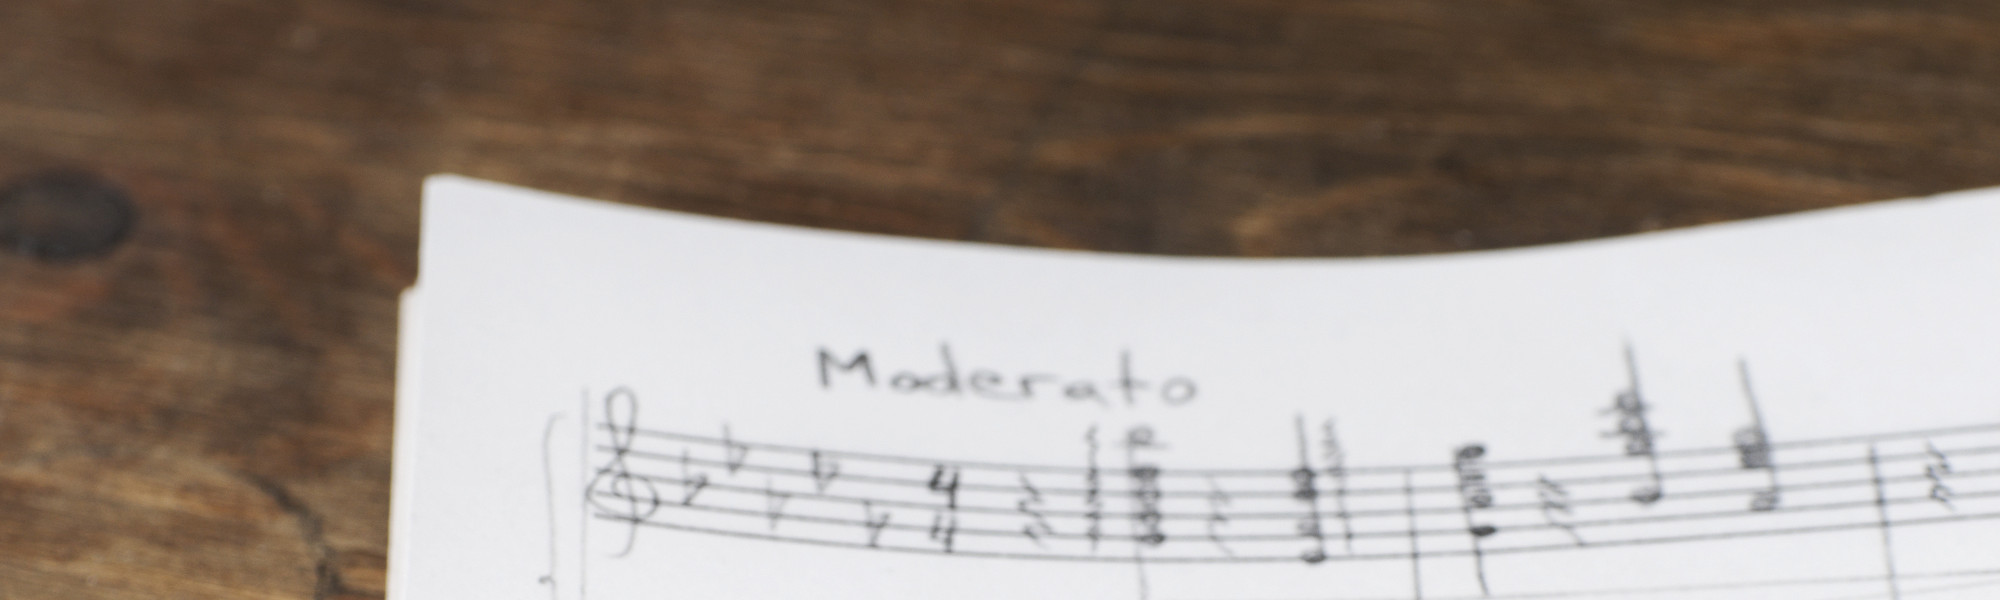 Moderato
4
4